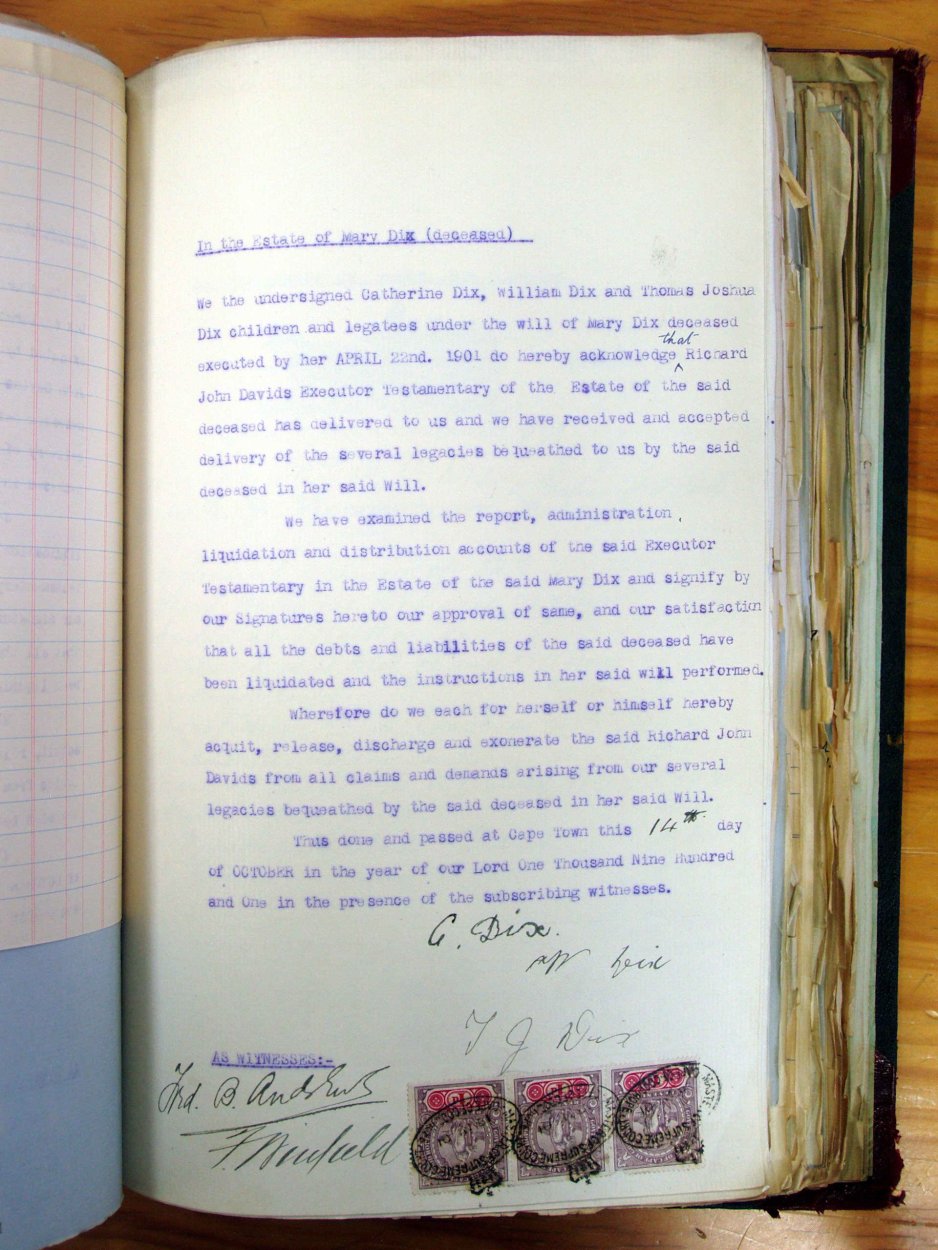 In the Estate of Mary Dix (deceased)
We the undersigned Catherine Dix, William Dix and Thomas Joshua
Dix children and legatees under the will of Mary Dix deceased
that
executed by her APRIL 22nd. 1901 do hereby acknowledge ^ Richard
John Davids Executor Testamentary of the Estate of the said
deceased has delivered to us and we have received and accepted
delivery of the several legacies bequeathed to us by the said
deceased in her said Will.
We have examined the report, administration,
liquidation and distribution accounts of the said Executor
Testamentary in the Estate of the said Mary Dix and signify by
our Signatures hereto our approval of same, and our satisfaction
that all the debts and liabilities of the said deceased have
been liquidated and the instructions in her said will performed.
Wherefore do we each for herself or himself hereby
acquit, release, discharge and exonerate the said Richard John
Davids from all claims and demands arising from our several
legacies bequeathed by the said deceased in her said Will.
Thus done and passed at Cape Town this 14th. day
of OCTOBER in the year of our Lord One Thousand Nine Hundred
and One in the presence of the subscribing witnesses.
C. Dix.
W Dix
T J Dix
AS WITNESSES:-
Fred. B. Andrews
F. Winfield
SUPREME COURT